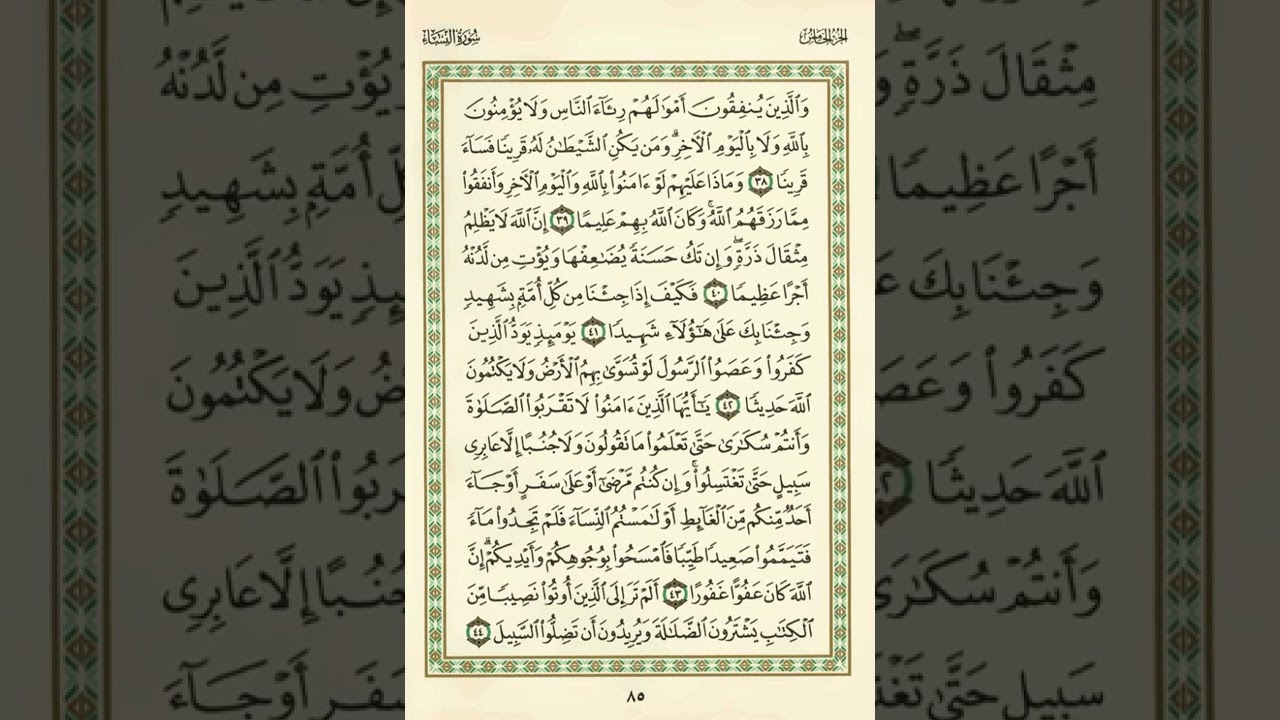 سُورَةُ النِّسَاءِ
الجُزْءُ الخَامِسُ
وَٱلَّذِينَ يُنفِقُونَ أَمْوَٰلَهُمْ رِئَآءَ ٱلنَّاسِ وَلَا يُؤْمِنُونَ
بِٱللَّهِ وَلَا بِٱلْيَوْمِ ٱلْأَخِرِۗ وَمَن يَكُنِ ٱلشَّيْطَٰنُ لَهُۥ قَرِينًا فَسَآءَ
قَرِينًا ٣٨ وَمَاذَا عَلَيْهِمْ لَوْ ءَامَنُوا۟ بِٱللَّهِ وَٱلْيَوْمِ ٱلْأَخِرِ وَأَنفَقُوا۟
مِمَّا رَزَقَهُمُ ٱللَّهُۚ وَكَانَ ٱللَّهُ بِهِمْ عَلِيمًا ٣٩ إِنَّ ٱللَّهَ لَا يَظْلِمُ
مِثْقَالَ ذَرَّةٍۖ وَإِن تَكُ حَسَنَةً يُضَٰعِفْهَا وَيُؤْتِ مِن لَّدُنْهُ
أَجْرًا عَظِيمًا ٤٠ فَكَيْفَ إِذَا جِئْنَا مِن كُلِّ أُمَّةٍۭ بِشَهِيدٍ
وَجِئْنَا بِكَ عَلَىٰ هَٰٓؤُلَآءِ شَهِيدًا ٤١ يَوْمَئِذٍ يَوَدُّ ٱلَّذِينَ
كَفَرُوا۟ وَعَصَوُا۟ ٱلرَّسُولَ لَوْ تُسَوَّىٰ بِهِمُ ٱلْأَرْضُ وَلَا يَكْتُمُونَ
ٱللَّهَ حَدِيثًا ٤٢ يَٰٓأَيُّهَا ٱلَّذِينَ ءَامَنُوا۟ لَا تَقْرَبُوا۟ ٱلصَّلَوٰةَ
وَأَنتُمْ سُكَٰرَىٰ حَتَّىٰ تَعْلَمُوا۟ مَا تَقُولُونَ وَلَا جُنُبًا إِلَّا عَابِرِى
سَبِيلٍ حَتَّىٰ تَغْتَسِلُوا۟ۚ وَإِن كُنتُم مَّرْضَىٰٓ أَوْ عَلَىٰ سَفَرٍ أَوْ جَآءَ
أَحَدٌ مِّنكُم مِّنَ ٱلْغَآئِطِ أَوْ لَٰمَسْتُمُ ٱلنِّسَآءَ فَلَمْ تَجِدُوا۟ مَآءً
فَتَيَمَّمُوا۟ صَعِيدًا طَيِّبًا فَٱمْسَحُوا۟ بِوُجُوهِكُمْ وَأَيْدِيكُمْۗ إِنَّ
ٱللَّهَ كَانَ عَفُوًّا غَفُورًا ٤٣ أَلَمْ تَرَ إِلَى ٱلَّذِينَ أُوتُوا۟ نَصِيبًا مِّنَ
ٱلْكِتَٰبِ يَشْتَرُونَ ٱلضَّلَٰلَةَ وَيُرِيدُونَ أَن تَضِلُّوا۟ ٱلسَّبِيلَ ٤٤
٨٥